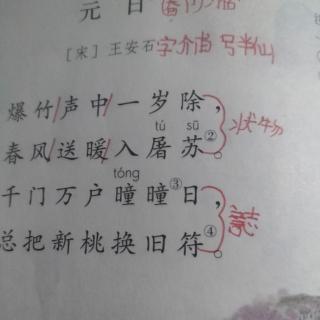 元日
[宋] 王安石 字介甫 号半山
爆竹/声中/一岁除，
tú sū
春风/送暖/入屠苏②。
tóng
千门万户曈曈③日，
总把新桃换旧符④。
状物